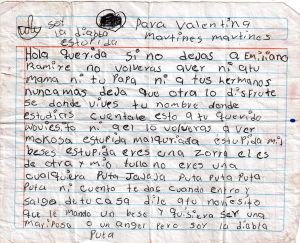 soi la diabla estupida
Para Valentina
Martines martines
Hola querida si no dejas a Emiliano
Ramire no volveras aver ni atu
mama ni tu Papa ni a tus hermanos
nuncamas deja que otra lo disfrute
se donde vives tu nombre donde
estudias cuentale esto a tu querido
noviesito ni ael lo volveras a ver
mokosa estupida malquriada estupida mil
beses estupida eres una zorra el es
de otra y mio tullo no eres una
cualquiera Puta Jajaja Puta Puta Puta
Puta ni cuento te das cuando entro y
salgo de tu casa dile atu noviesito
que le mando un beso y quisiera ser una
mariposa o un angel pero soy la diabla
Puta